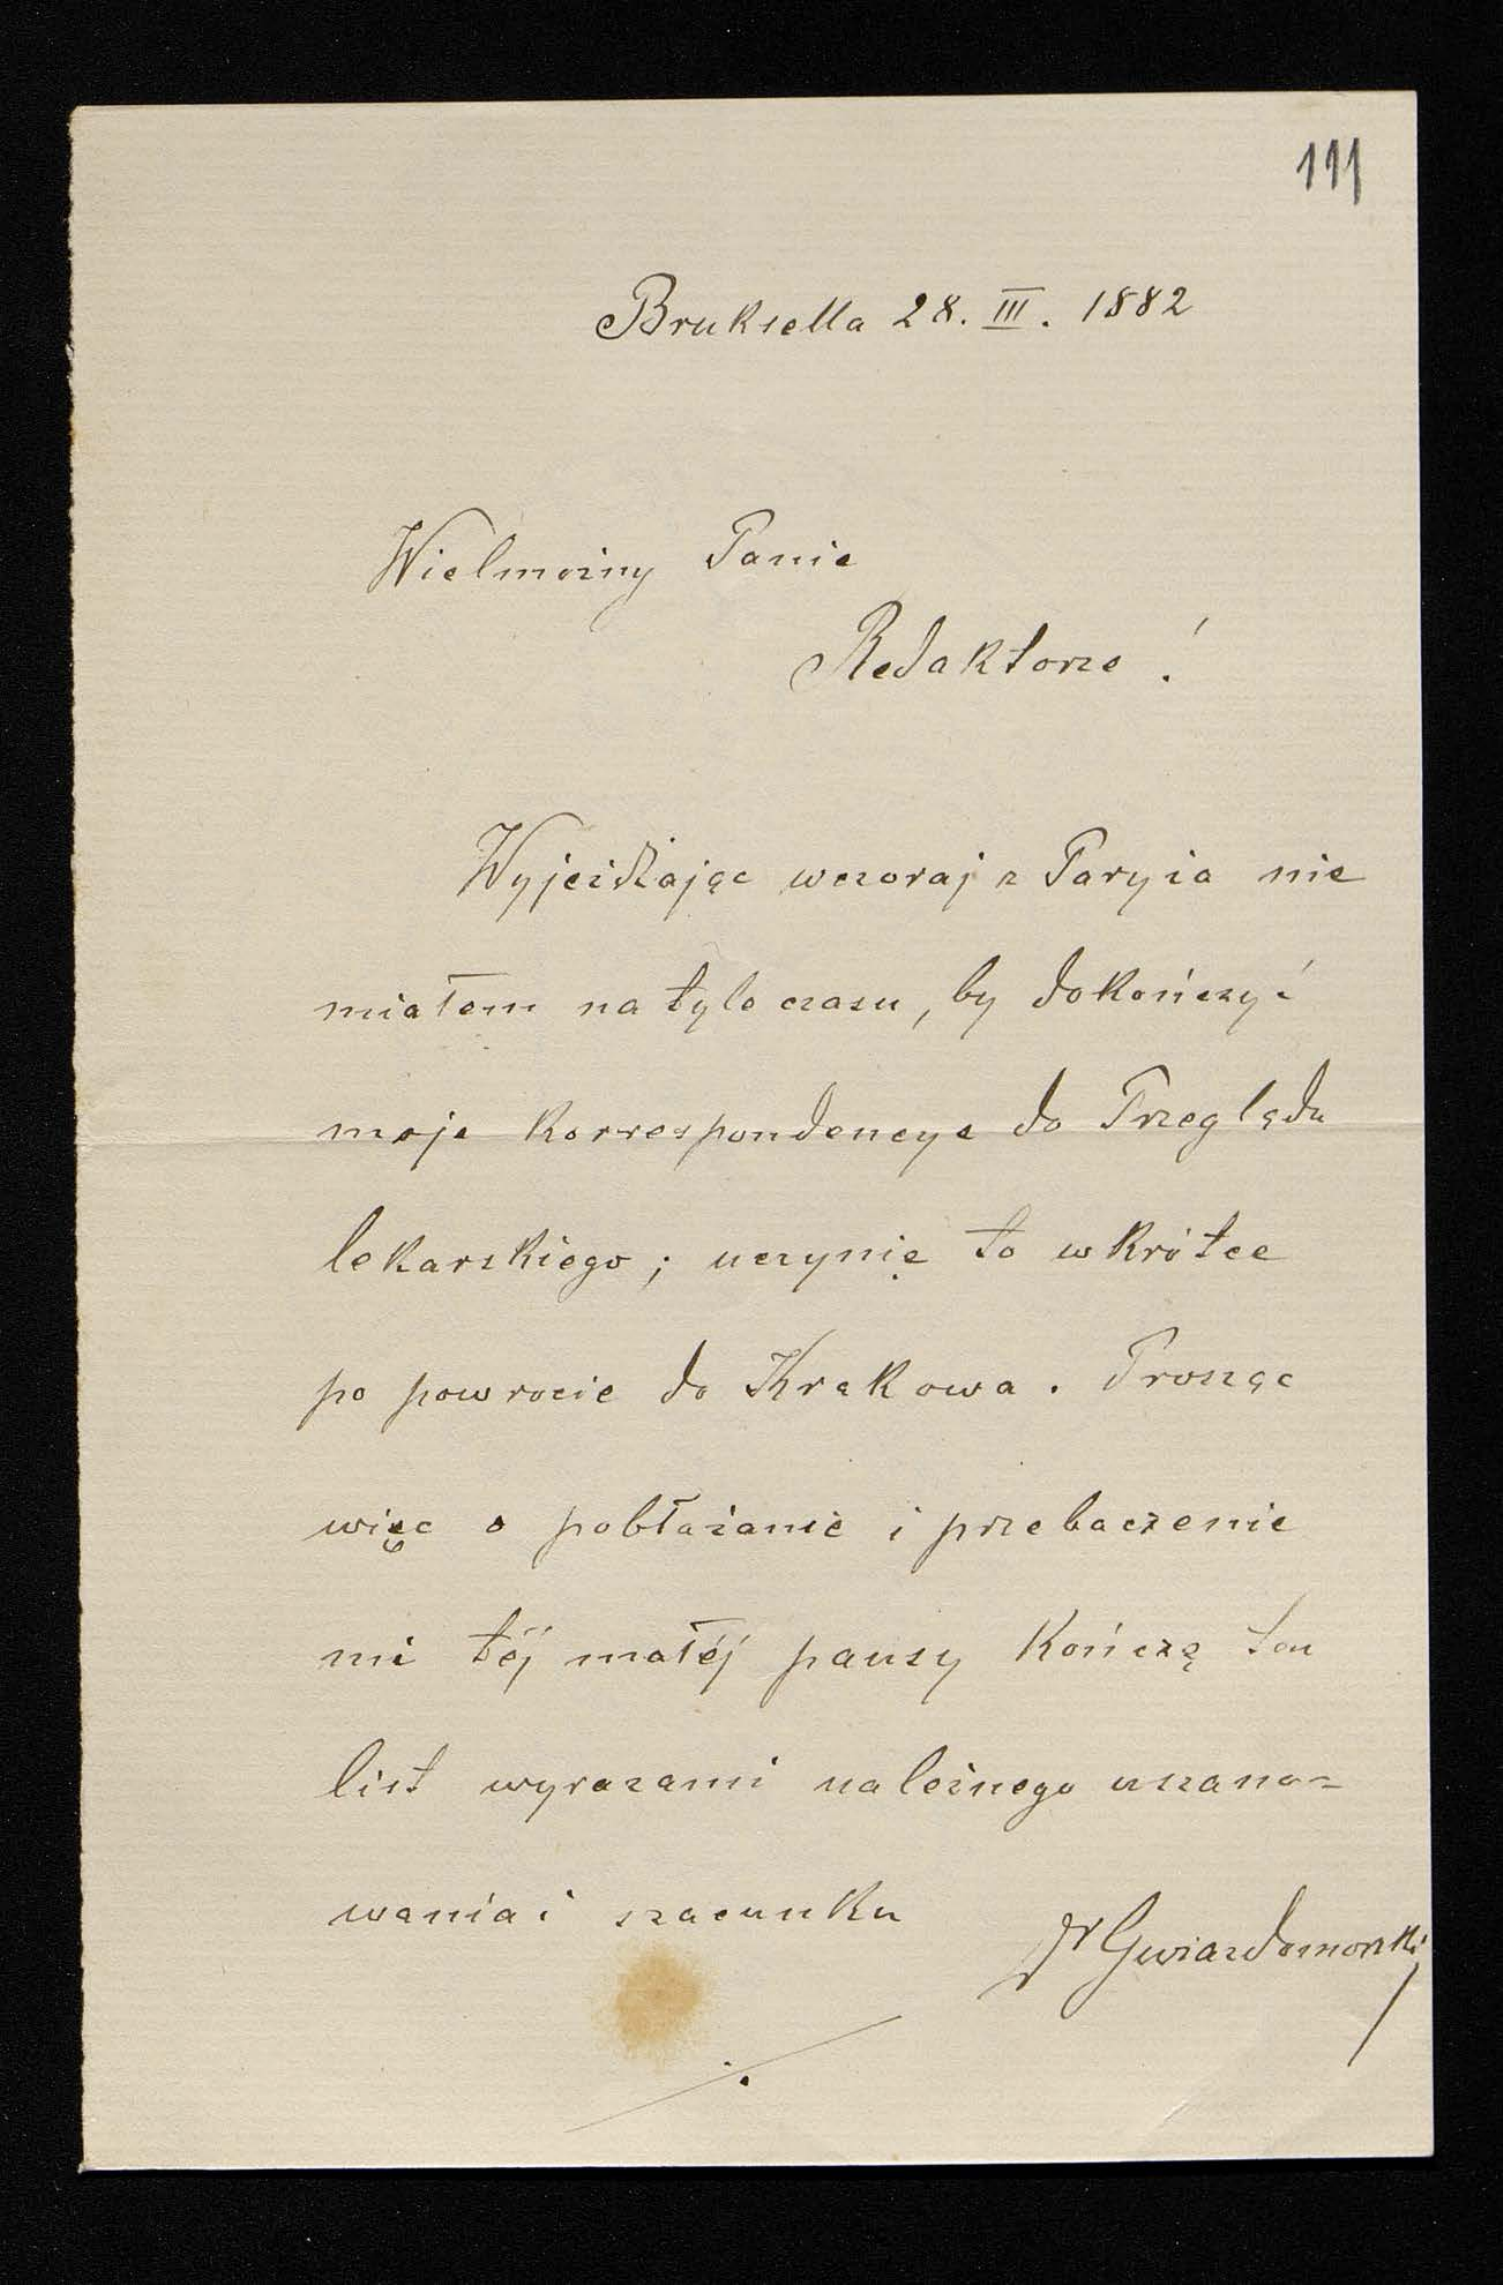 111
Bruksella 28. III. 1882
Wielmożny Panie
Redaktorze!
Wyjeżdżając wczoraj z Paryża nie
miałem na tyle czasu, by dokończyć
moje korrespondencye do Przeglądu
lekarskiego; uczynię to wkrótce
po powrocie do Krakowa. Prosząc
więc o pobłażanie i przebaczenie
mi téj małéj pauzy kończę ten
list wyrazami należnego uszano=
wania i szacunku
Dr Gwiazdomorski